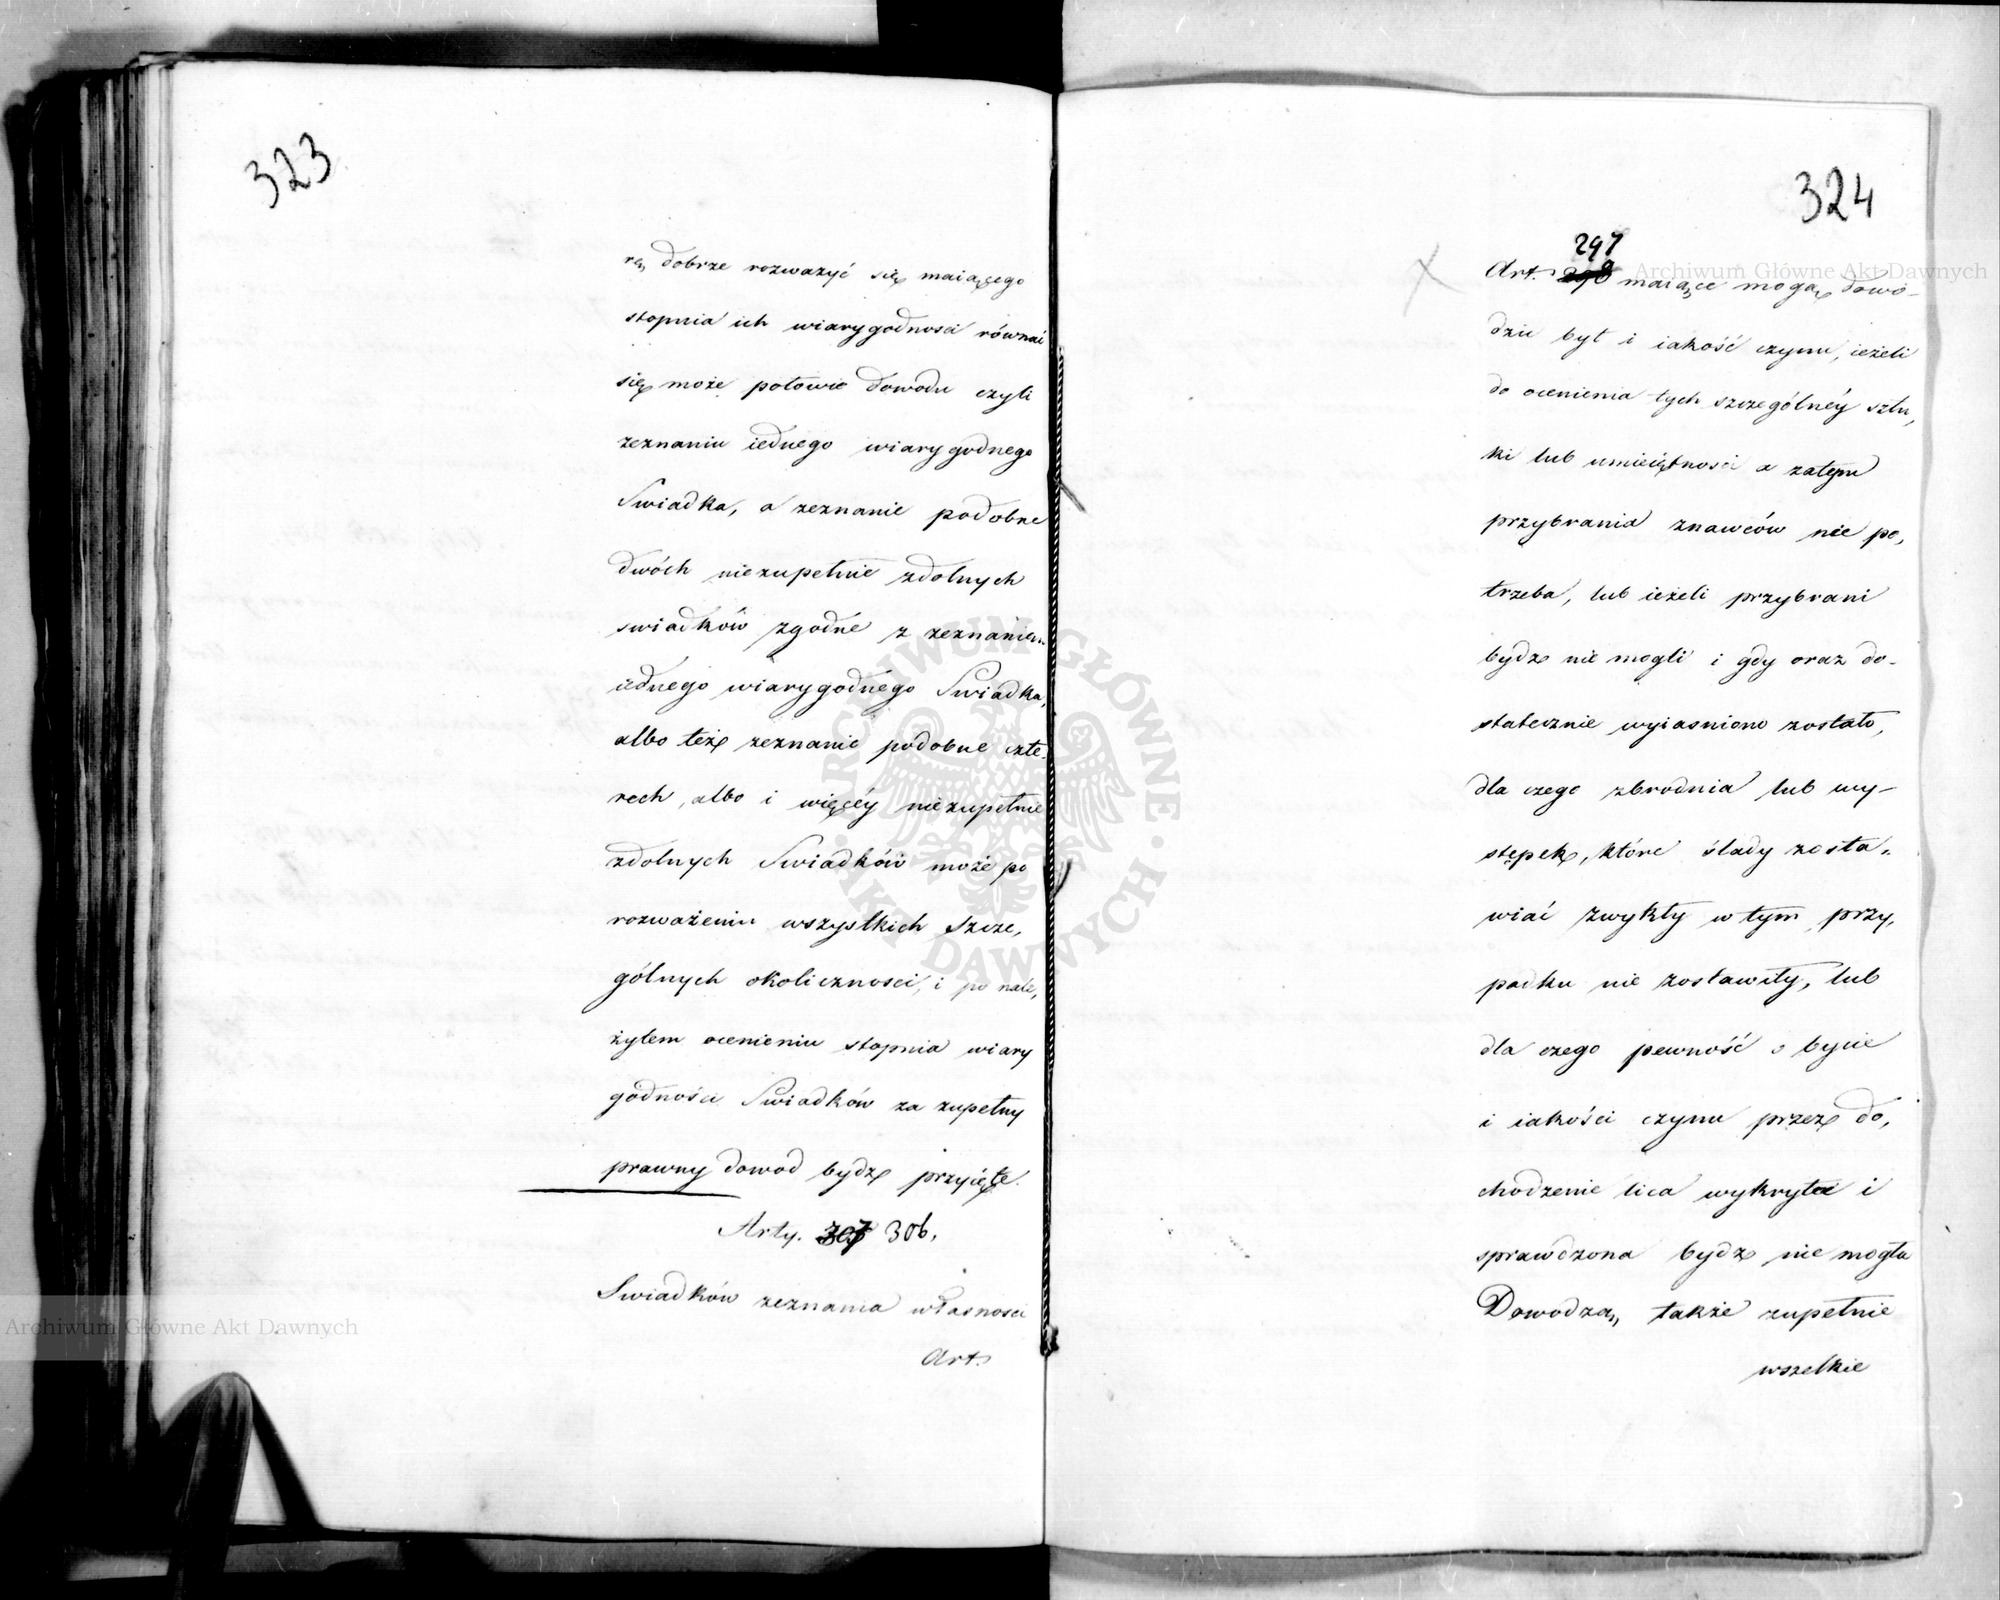 323
rą dobrze rozważyć się maiącego
stopnia ich wiarygodnosci równać
się może połowie dowodu czyli
zeznaniu iednego wiarygodnego
Swiadka, a zeznanie podobne
dwóch niezupełnie zdolnych
swiadków zgodne z zeznaniem
iednego wiarygodnego Swiadka,
albo też zeznanie podobne czte-
rech, albo i więcéy niezupełnie
zdolnych Swiadków może po
rozważeniu wszystkich Szcze,
gólnych okoliczności, i po nale,
żytem ocenieniu stopnia wiary
godności Swiadków za zupełny
prawny dowod bydź przyięte.
Arty. 307 306.
Swiadków zeznania własnosci
Art.
324
297
Art. 298 maiące mogą dowo-
dzić byt i iakość czynu, ieżeli
do ocenienia tych szczególnéy sztu,
ki lub umieiętnosci a zatem
przybrania znawców nie po,
trzeba, lub ieżeli przybrani
bydź nie mogli i gdy oraz do-
statecznie wyiasniono zostało,
dla czego zbrodnia lub wy-
stępek, które ślady zosta-
wiać zwykły w tym przy,
padku nie zostawiły, lub
dla czego pewność o bycie
i iakości czynu przez do,
chodzenie lica wykryta i
sprawdzona bydź nie mogła
Dowodzą, także zupełnie
wszelkie
Archiwum Główne Akt Dawnych
Archiwum Główne Akt Dawnych
ARCHIWUM GŁÓWNE · AKT DAWNYCH ·